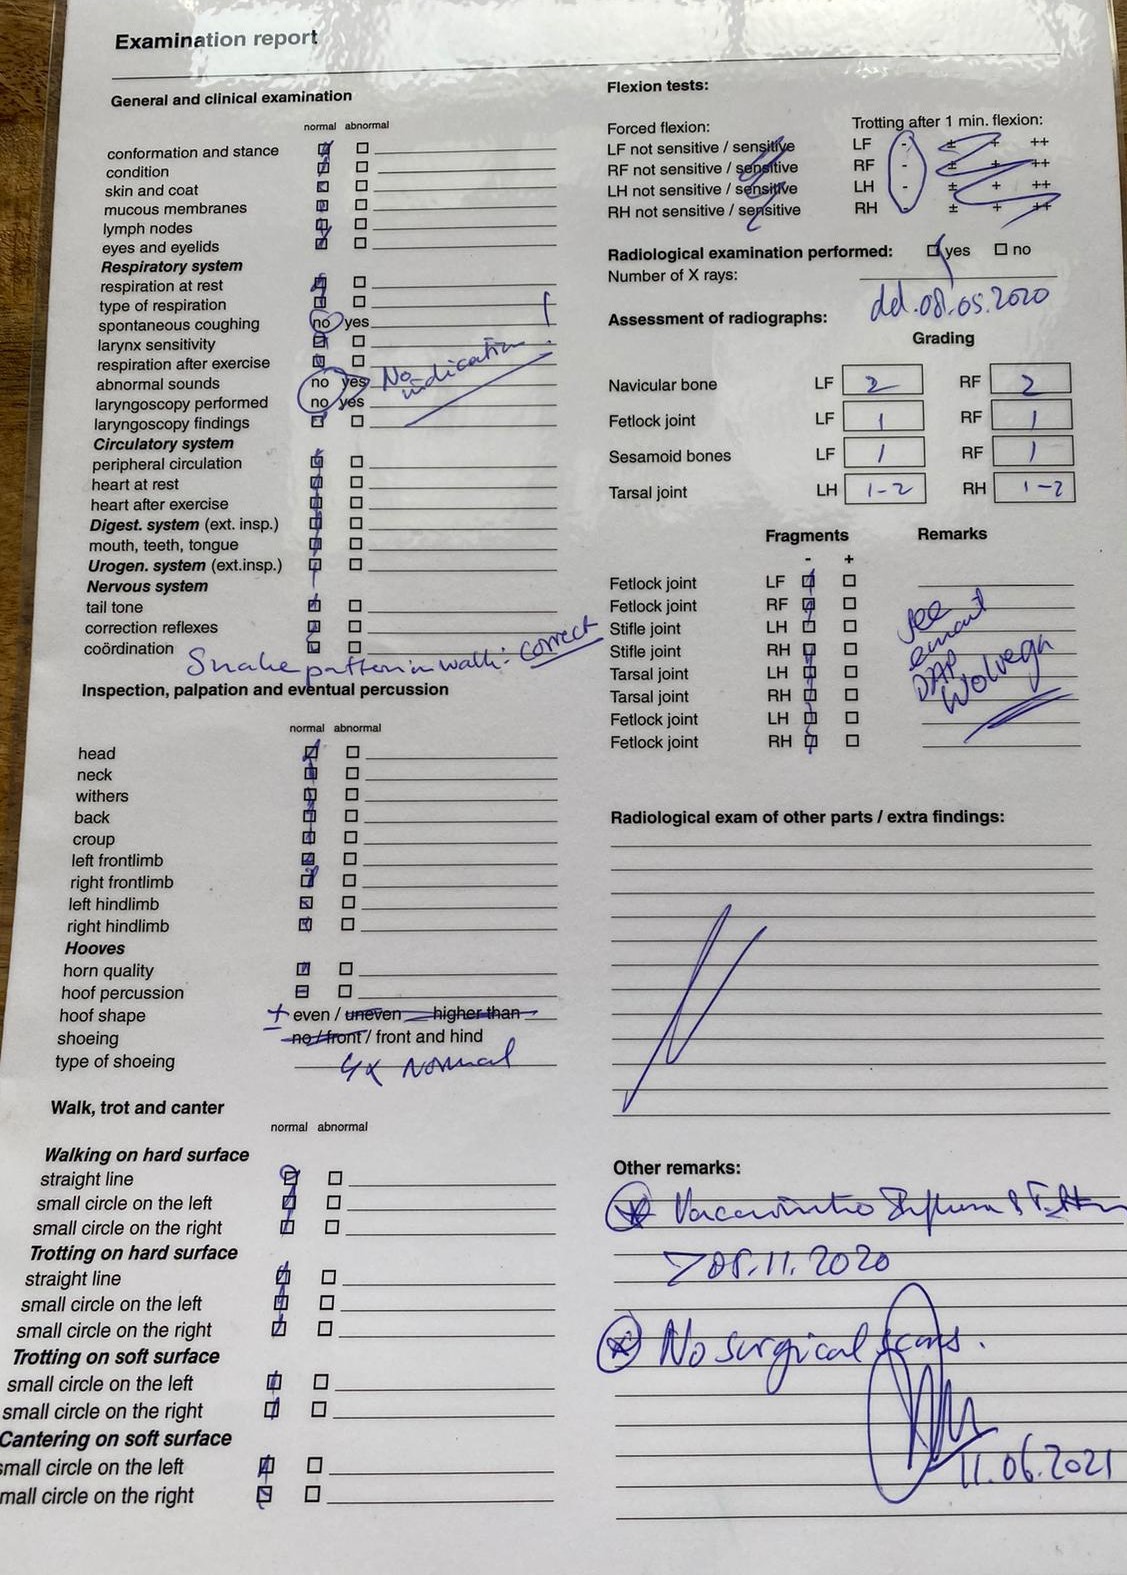 Examination report
General and clinical examination
normal abnormal
conformation and stance
condition
skin and coat
mucous membranes
lymph nodes
eyes and eyelids
Respiratory system
respiration at rest
type of respiration
spontaneous coughing no yes
larynx sensitivity
respiration after exercise
abnormal sounds no yes No indication
laryngoscopy performed no yes
laryngoscopy findings
Circulatory system
peripheral circulation
heart at rest
heart after exercise
Digest. system (ext. insp.)
mouth, teeth, tongue
Urogen. system (ext.insp.)
Nervous system
tail tone
correction reflexes
coördination
Snake pattern in walk: correct
Inspection, palpation and eventual percussion
normal abnormal
head
neck
withers
back
croup
left frontlimb
right frontlimb
left hindlimb
right hindlimb
Hooves
horn quality
hoof percussion
hoof shape ± even / uneven higher than
shoeing no / front / front and hind
type of shoeing 4x normal
Walk, trot and canter
normal abnormal
Walking on hard surface
straight line
small circle on the left
small circle on the right
Trotting on hard surface
straight line
small circle on the left
small circle on the right
Trotting on soft surface
small circle on the left
small circle on the right
Cantering on soft surface
small circle on the left
mall circle on the right
Flexion tests:
Forced flexion: Trotting after 1 min. flexion:
LF not sensitive / sensitive LF - ± + ++
RF not sensitive / sensitive RF - ± + ++
LH not sensitive / sensitive LH - ± + ++
RH not sensitive / sensitive RH - ± + ++
Radiological examination performed: yes no
Number of X rays:
dd. 08.05.2020
Assessment of radiographs:
Grading
Navicular bone LF 2 RF 2
Fetlock joint LF 1 RF 1
Sesamoid bones LF 1 RF 1
Tarsal joint LH 1-2 RH 1-2
Fragments Remarks
- +
Fetlock joint LF
Fetlock joint RF
Stifle joint LH
Stifle joint RH
Tarsal joint LH
Tarsal joint RH
Fetlock joint LH
Fetlock joint RH
see
DAP
Wolvega
Radiological exam of other parts / extra findings:
Other remarks:
> 05.11.2020
No surgical scars.
11.06.2021